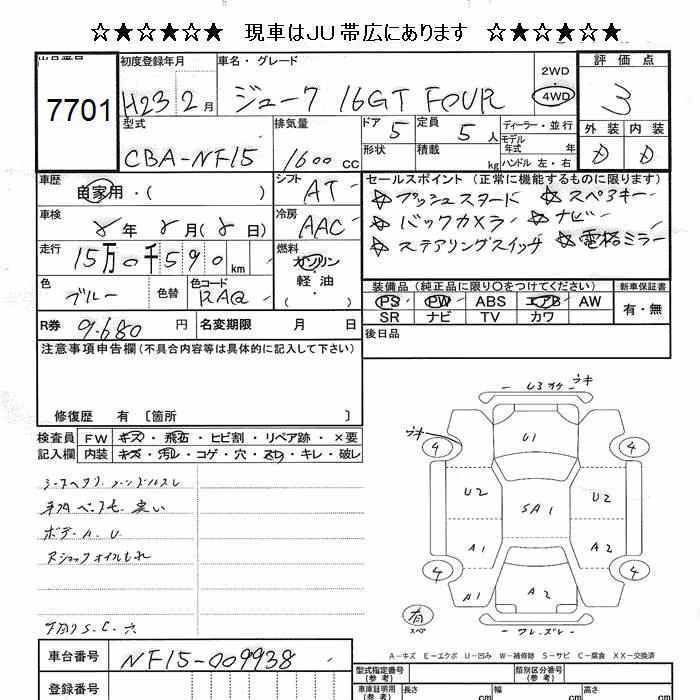 ☆★☆★☆★ 現車はJU帯広にあります ☆★☆★☆★
出品番号 7701
初度登録年月 H23 2月
車名・グレード ジューク 16GT FOUR
2WD
4WD
評価点
3
型式 CBA-NF15
排気量 1600 cc
ドア 5
定員 5 人
形状
積載 kg
ディーラー・並行
モデル年式 年
ハンドル 左・右
外装 内装
D D
車歴 自家用・( )
シフト AT
セールスポイント (正常に機能するものに限ります)
☆プッシュスタート ☆スペアキー
☆バックカメラ ☆ナビ
☆ステアリングスイッチ ☆電格ミラー
車検 年 月( 日)
冷房 AAC
走行 15万0千590 km
燃料 ガソリン・軽油・( )
色 ブルー 色替
色コード RAQ
装備品 (純正品に限り○をつけてください) 新車保証書
PS PW ABS エアB AW 有・無
SR ナビ TV カワ
R券 9.680 円 名変期限 月 日
後日品
注意事項申告欄(不具合内容等は具体的に記入して下さい)
修復歴 有 〔箇所 〕
検査員 FW キズ・飛石・ヒビ割・リペア跡・×要
記入欄 内装 キズ・汚レ・コゲ・穴・スレ・キレ・破レ
ボデーA.U
Rショックオイルもれ
下回りS.C.穴
U3 キ
U1
4 4
U2 SA1 U2
A1 A2
4 4
A1 A2
有
スペア
A-キズ E-エクボ U-凹み W-補修跡 S-サビ C-腐食 XX-交換済
車台番号 NF15-009938
登録番号
型式指定番号(参考) 類別区分番号(参考)
車庫証明用(参考) 長さ cm 幅 cm 高さ cm